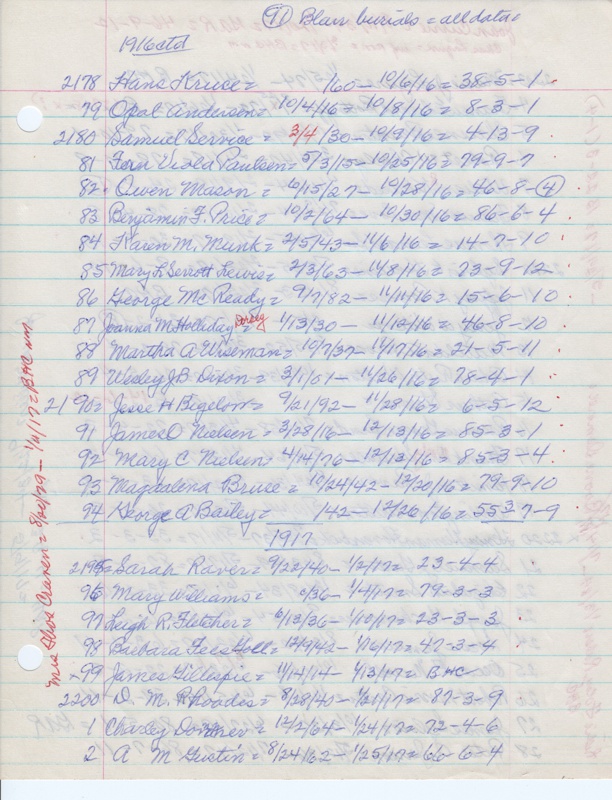 (91) Blair burials = all data =
1916 ctd
2178 Hans Kruse = /60 - 10/6/16 = 38-5-1
79 Opal Anderson = 10/4/16 = 10/8/16 = 8-3-1
2180 Samuel Service = 3/4/30 - 10/9/16 = 4-13-9
81 Fern Viola Paulsen = 5/3/15 - 10/25/16 = 79-9-7
82 Owen Mason = 6/15/27 - 10/28/16 = 46-8-4
83 Benjamin F. Price = 10/2/64 - 10/30/16 = 86-6-4
84 Karen M. Munk = 2/5/43 - 11/6/16 = 14-7-10
85 Mary L Serrott Lewis = 2/3/63 - 11/8/16 = 73-9-12
86 George McReady = 9/7/82 - 11/11/16 = 15-6-10
87 Joanna M Holliday = 1/13/30 - 11/12/16 = 46-8-10
88 Martha A Wiseman = 10/7/37 - 11/17/16 = 21-5-11
89 Wesley J B Dixon = 3/1/61 - 11/26/16 = 78-4-1
2190 = Jesse H Bigelow = 9/21/92 - 11/28/16 = 6-5-12
91 James O Nielsen = 3/28/16 - 12/13/16 = 85-3-1
92 Mary C Nielsen = 4/14/76 - 12/13/16 = 85-3-4
93 Magdalena Bruse = 10/24/42 - 12/20/16 = 79-9-10
94 George A Bailey = /42 - 12/26/16 = 55-7-9
1917
2195 = Sarah Raver = 9/22/40 - 1/2/17 = 23-4-4
96 Mary Williams = 0/36 - 1/4/17 = 79-3-3
97 Leigh R. Fletcher = 6/13/36 - 1/10/17 = 23-3-3
98 Barbara Hall = 12/9/42 - 1/16/17 = 47-3-4
-99 James Gillespie = 11/14/14 - 1/13/17 = BHC
2200 D. M. Rhoades = 8/28/40 - 1/21/17 = 87-3-9
1 Charley = 12/2/64 - 1/24/17 = 72-4-6
2 A M Gustin = 8/24/62 - 1/25/17 = 66-6-4
Mrs Craven = 8/20/29 - 1/11/17 = BHC nm